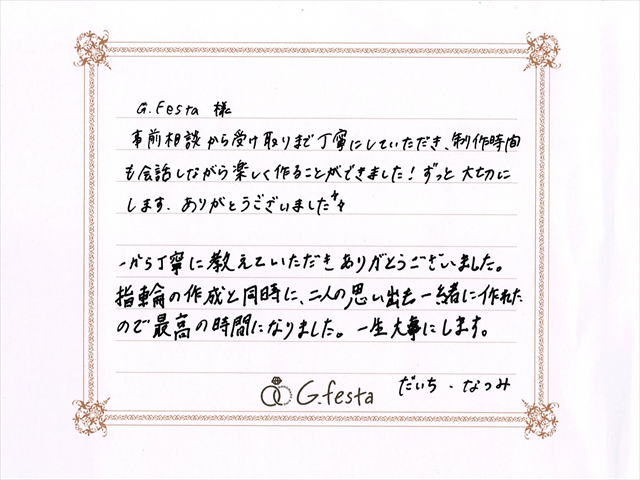 G.Festa 様
事前相談から受け取りまで丁寧にしていただき、制作時間
も会話しながら楽しく作ることができました！ずっと大切に
します。ありがとうございました
一から丁寧に教えていただきありがとうございました。
指輪の作成と同時に、二人の思い出も一緒に作れた
ので最高の時間になりました。一生大事にします。
だいち・なつみ
G.festa